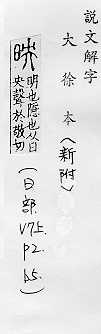 說文解字
大徐本〈新附〉
映
明也隱也从日
央聲於敬切
(日部. V75. P2. b5.)